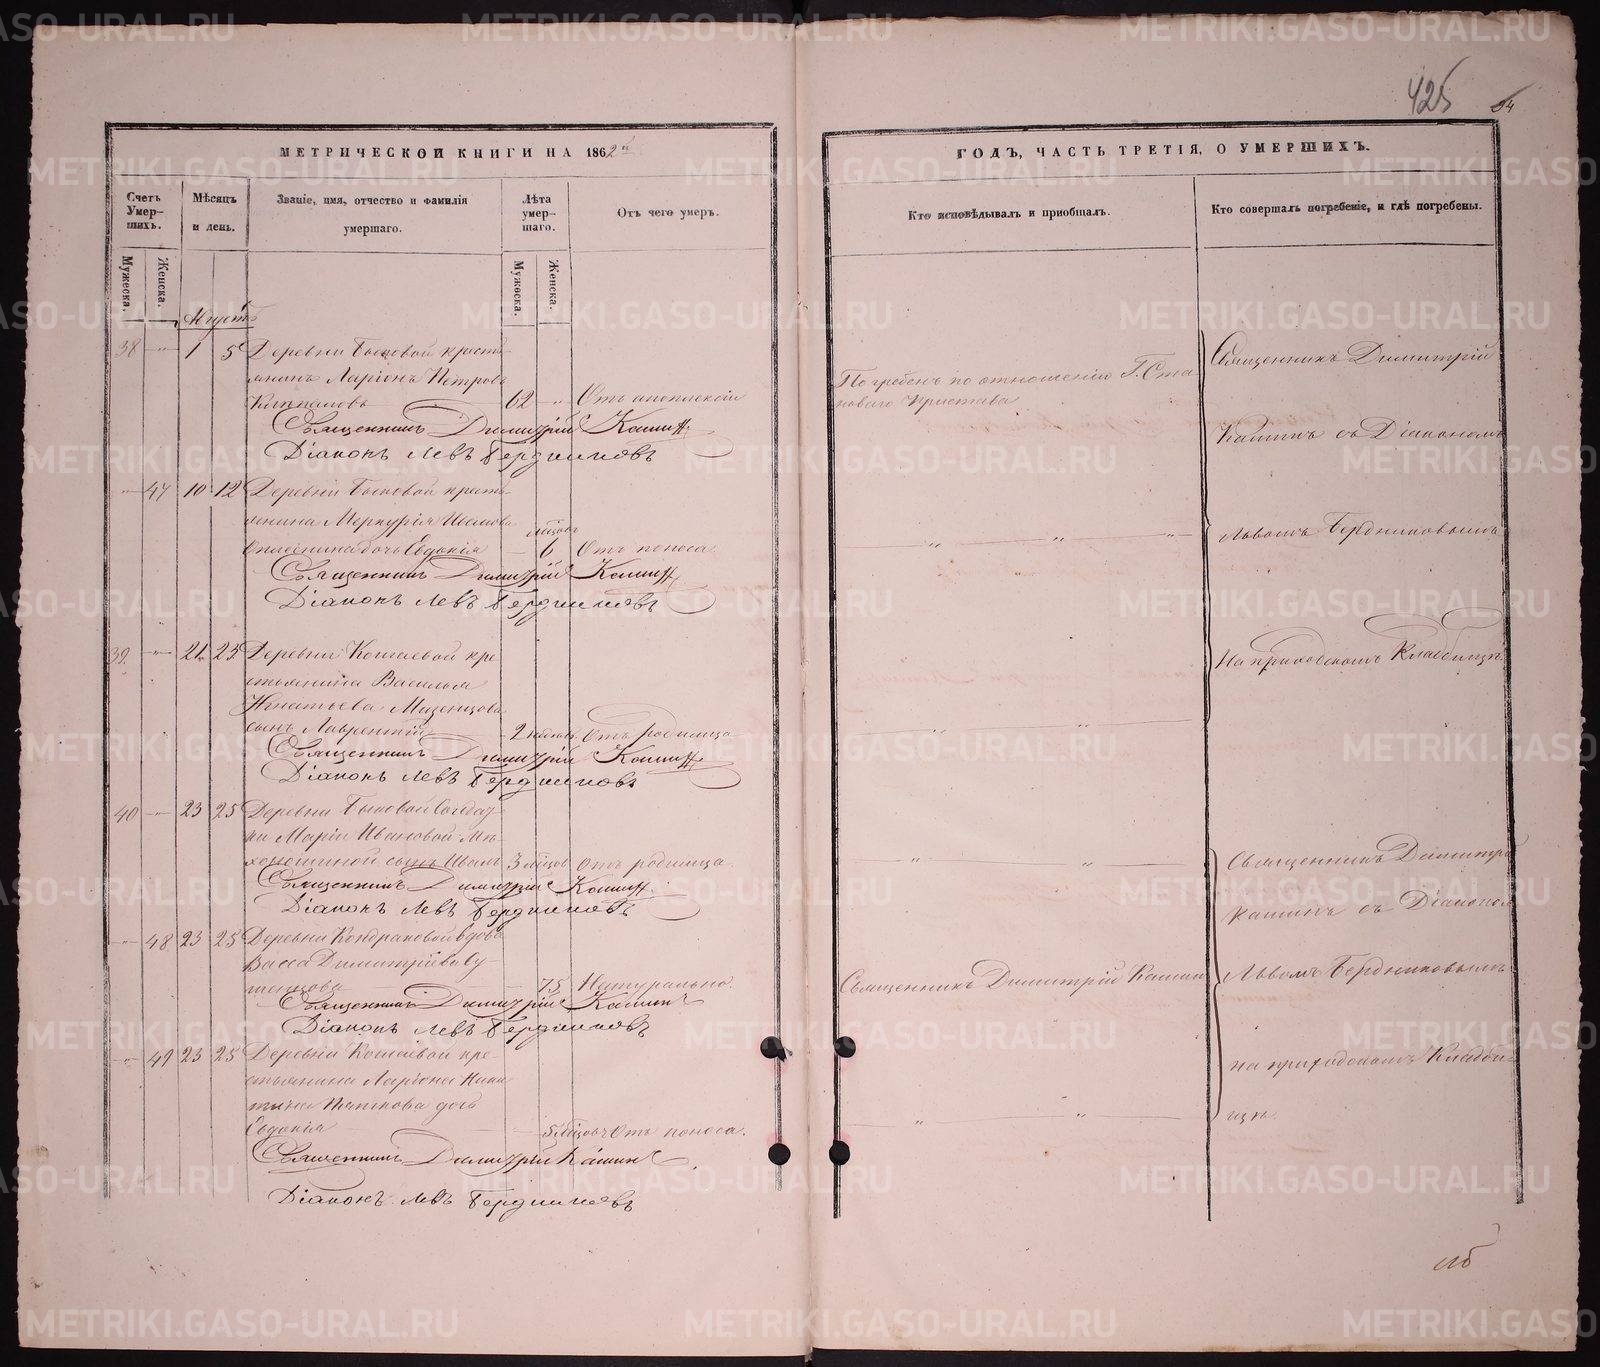 425
64
МЕТРИЧЕСКОЙ КНИГИ НА 1862й
ГОДЪ, ЧАСТЬ ТРЕТІЯ, О УМЕРШИХЪ.
Счетъ Умер-шихъ.
Мѣсяцъ и день.
Званіе, имя, отчество и фамилія умершаго.
Лѣта умер-шаго.
Отъ чего умеръ.
Кто исповѣдывалъ и приобщалъ.
Кто совершалъ погребеніе, и гдѣ погребены.
Мужеска.
Женска.
Мужеска.
Женска.
Августъ
38 — 1 5 Деревни Быковой кресть-
янинъ Ларіонъ Петровъ
62 „ Отъ апоплексіи
Священникъ Димитрій Кашинъ
Діаконъ Левъ Бердниковъ
„ 47 10 12 Деревни Быковой кресть-
янина Меркурія Иванова
дочь Евдокія — мѣсцовъ 6 Отъ поноса
Священникъ Димитрій Кашинъ
Діаконъ Левъ Бердниковъ
39. — 21 23 Деревни Кошаевой кре
стьянина Василья
Игнатьева Мизенцова
сынъ Лаврентій — 2 недѣль Отъ родимца
Священникъ Димитрій Кашинъ
Діаконъ Левъ Бердниковъ
40 — 23 25 Деревни Быковой Солдат-
ки Маріи Ивановой Мѣ-
хоношиной сынъ Иванъ 3 мѣсцов Отъ родимца
Священникъ Димитрій Кашинъ
Діаконъ Левъ Бердниковъ
„ 48 23 25 Деревни Кондраковой вдова
Васса Димитріева Су-
— 75 Натурально.
Священникъ Димитрій Кашинъ
Діаконъ Левъ Бердниковъ
„ 49 23 25 Деревни Кошаевой кре-
стьянина Ларіона Ники
тина дочь
Евдокія — 5 мѣсцовъ Отъ поноса.
Священникъ Димитрій Кашинъ
Діаконъ Левъ Бердниковъ
Погребенъ по отношенію Г. Ста
новаго Пристава
Священникъ Димитрій
Кашинъ съ Діакономъ
Львомъ Бердниковымъ
На приходскомъ Кладбищѣ.
Священникъ Димитрій
Кашинъ съ Діакономъ
Священникъ Димитрій Кашинъ
Львомъ Бердниковымъ
на приходскомъ Кладби-
щѣ.
METRIKI.GASO-URAL.RU